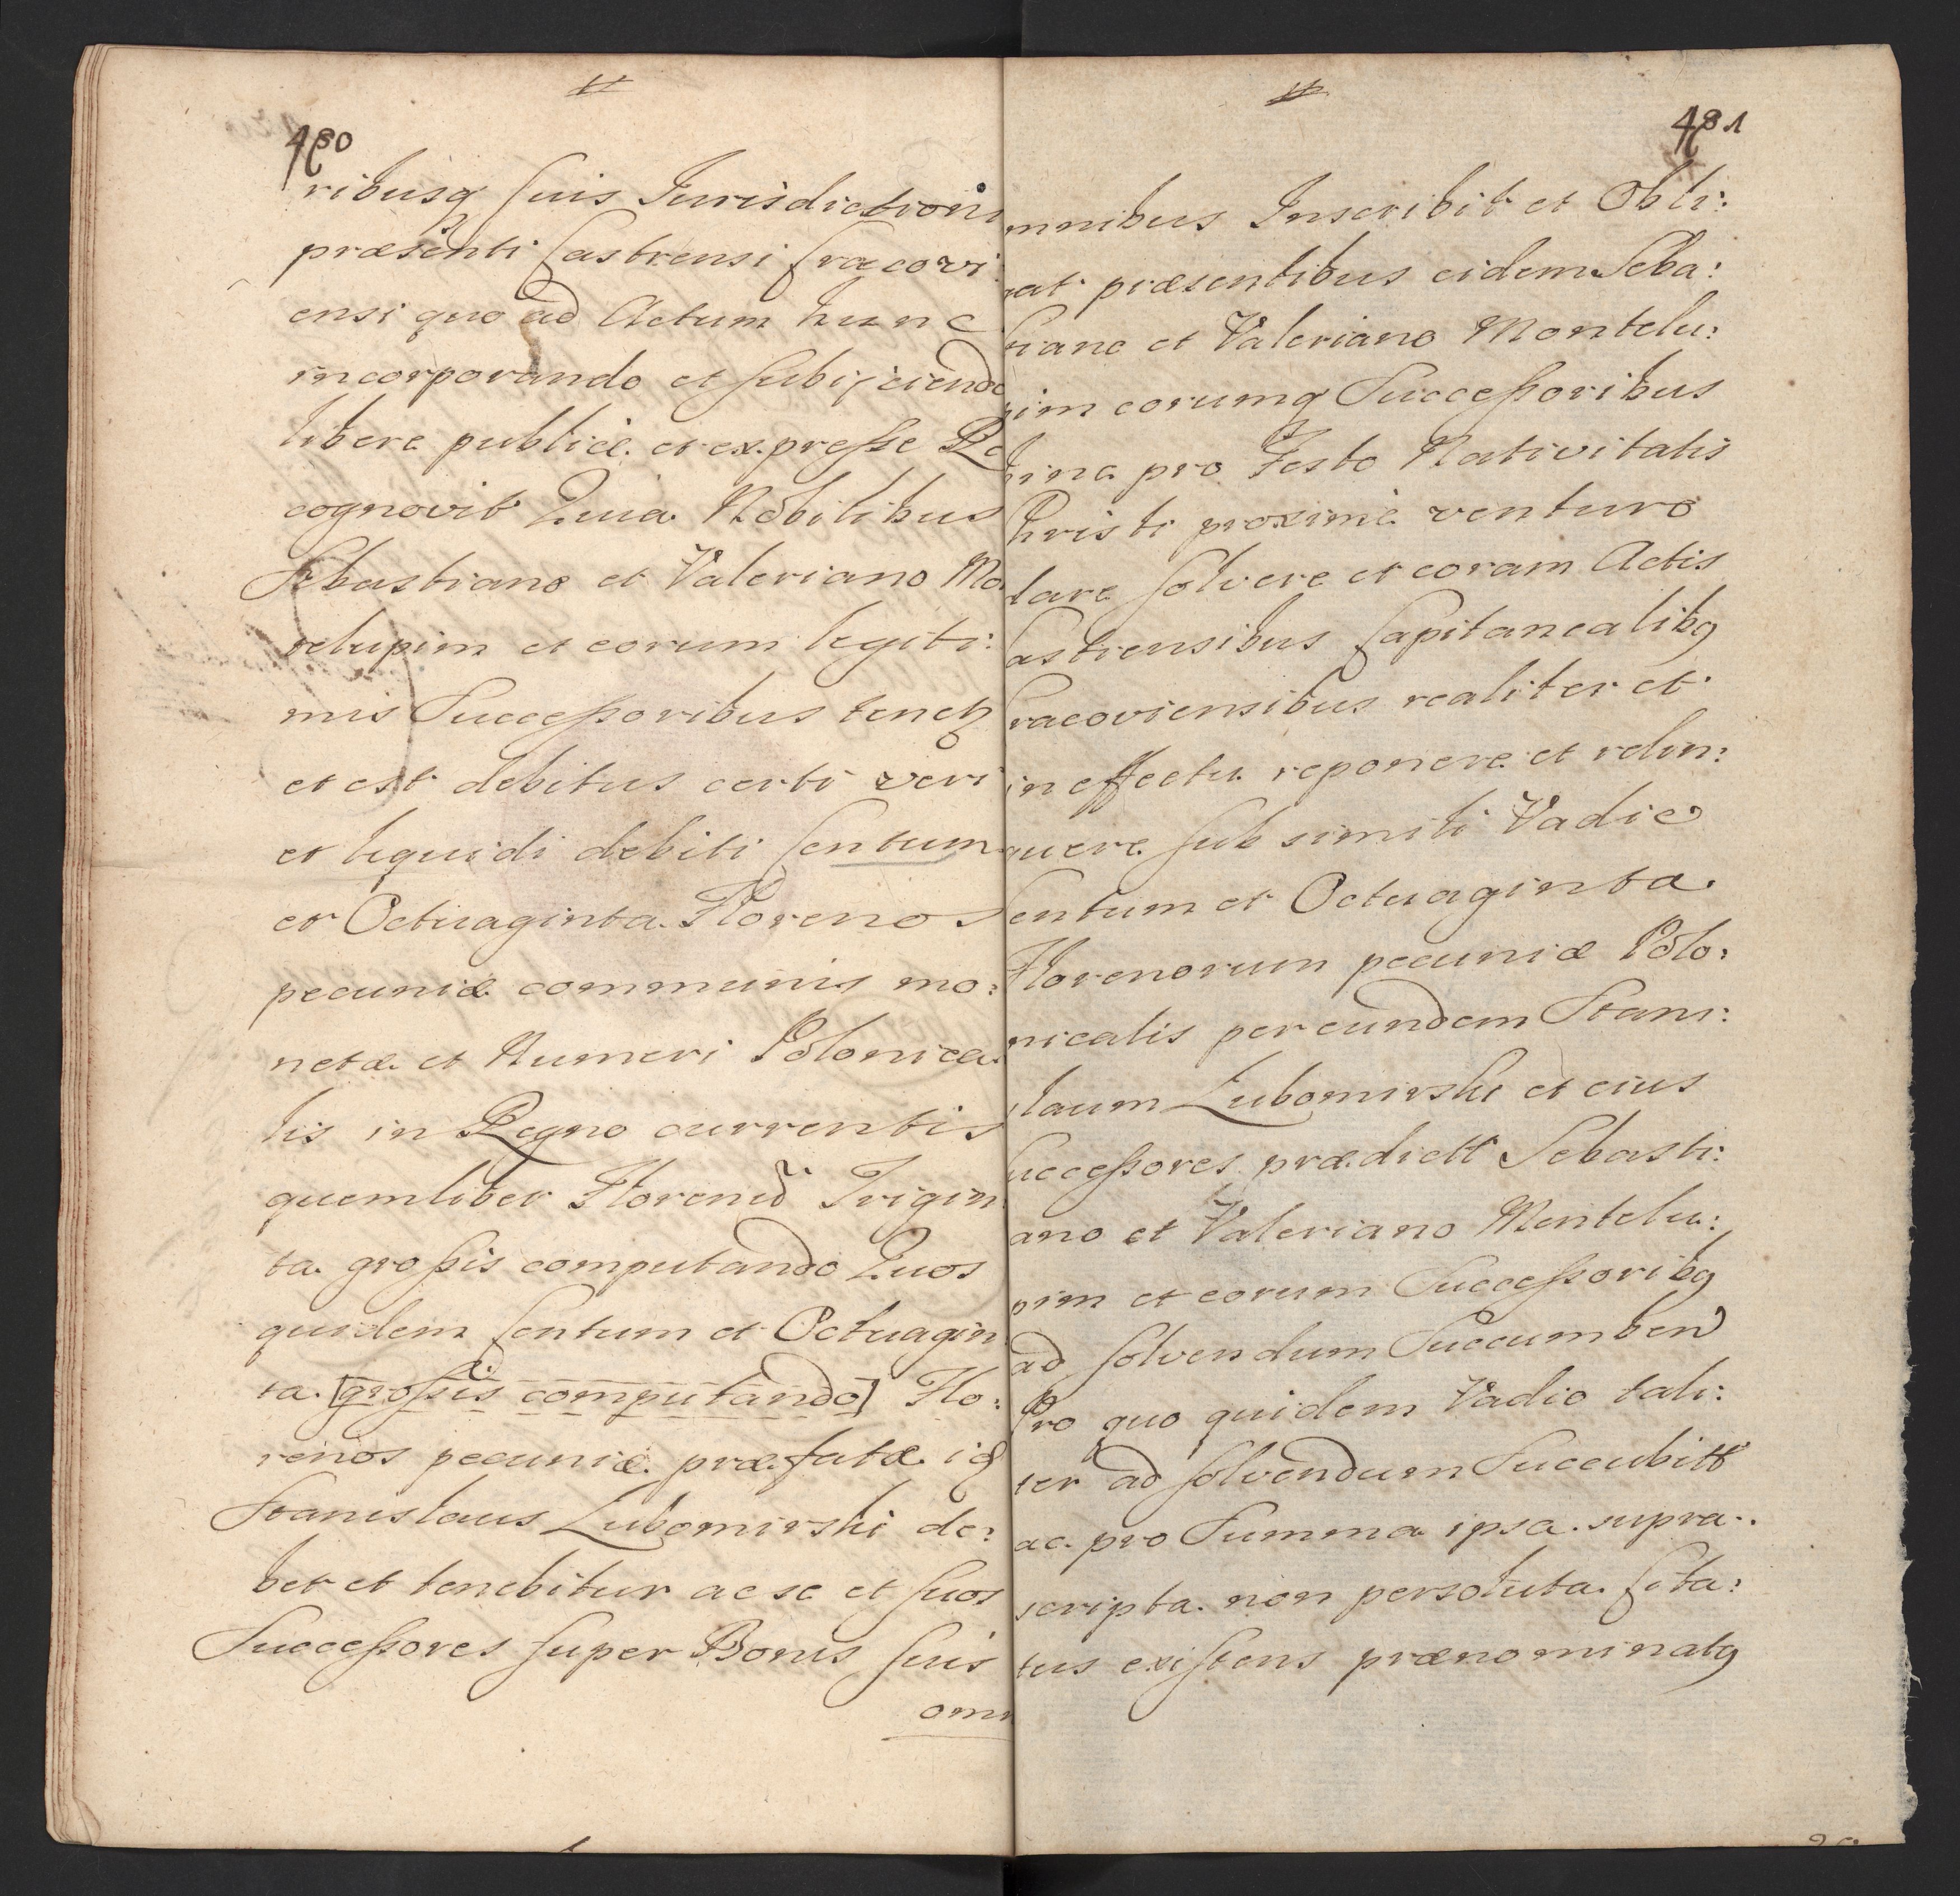 480
ribusq suis Jurisdictioni
præsenti Castrensi Cracovi
ensi quo ad Actum hunc
incorporando et subijciendo
libere publicè et expresse Re
cognovit Quia Nobilibus
Sebastiano et Valeriano Mo
telupim et eorum legiti:
mis Successoribus tenetz
et est debitus certi veri
et liquidi debiti Centum
et Octuaginta Florenos
pecuniæ communis mo:
netæ et Numeri Polonica
lis in Regno currentis
quemliber Florenũ Trigin
ta grossis computando Quos
quidem Centum et Octuagin
ta [grossis computando] Flo:
renos pecuniæ præfatæ id
Stanislaus Lubomirski de:
bet et tenebitur ac se et suos
Successores super Bonis suis
omn
481
mnibus Inscribit et Obli:
gat præsentibus eidem Seba:
tiano et Valeriano Montelu:
pim eorumq Successoribus
hinc pro Festo Nativitatis
Christi proximè venturo
dare solvere et coram Actis
Castrensibus Capitanealibq
Cracoviensibus realiter et
in effectu reponere et relin:
quere sub simili Vadio
Centum et Octuaginta
Florenorum pecuniæ Polo:
nicalis per eundem Stani:
slaum Lubomirski et eius
Successores prædictt Sebasti:
ano et Valeriano Montelu:
pim et eorum Successoribq
ad solvendum Succumben
Pro quo quidem Vadio tali:
ter ad solvendum Succubitt
ac pro Summa ipsa supra:
scripta non persoluta Cita:
tus existens prænominatq